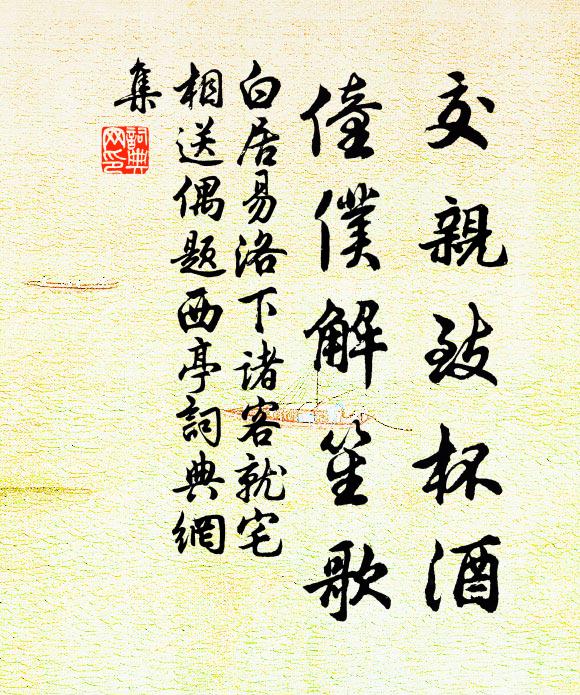 交親致杯酒
僮僕解笙歌
白居易洛下諸客就宅
相送偶題西亭詞典網
集
詞典
网印